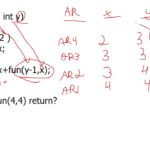 int y)      AR    x    y
2 )      AR4    2    3
x;      AR3    3    3
x+fun(y-1,x);      AR2    3    4
AR1    4    4
un(4,4) return?